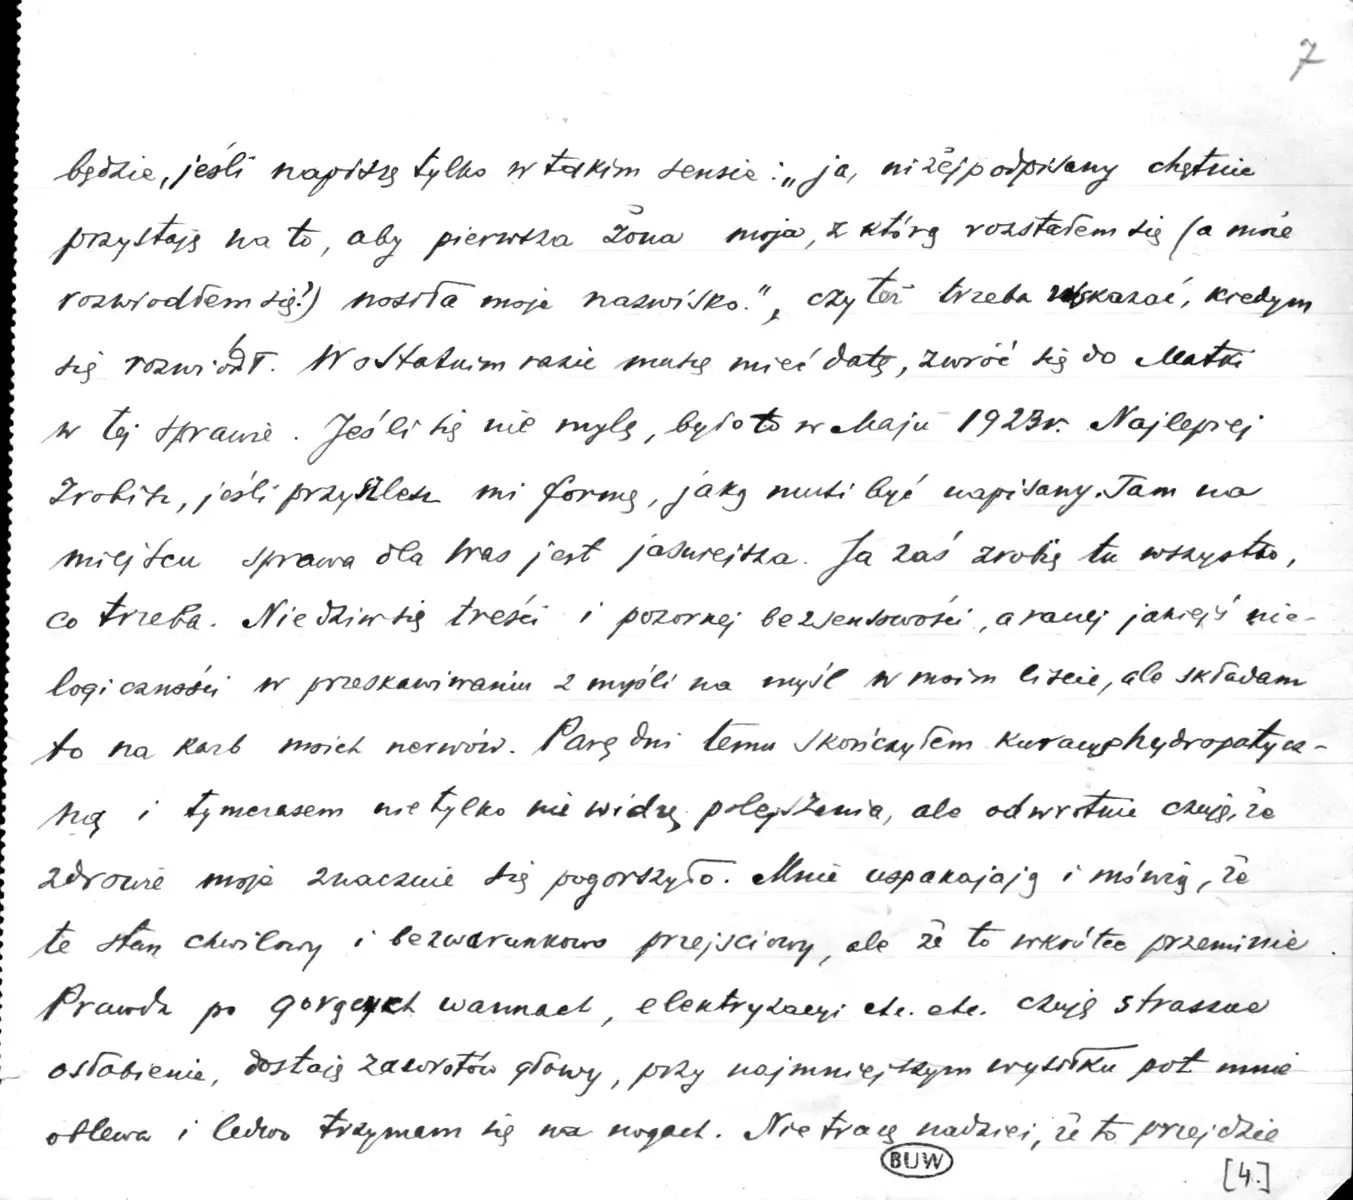 7
będzie, jeśli napiszę tylko w takim sensie: „ja, niżéjpodpisany chętnie
przystaję na to, aby pierwsza żona moja, z którą rozstałem się (a może
rozwiodłem się?) nosiła moje nazwisko.", czy też trzeba wskazać, kiedym
się rozwiódł. W ostatnim razie muszę mieć datę, zwróć się do Matki
w tej sprawie. Jeśli się nie mylę, było to w Maju 1923 r. Najlepiej
zrobisz, jeśli przyszlesz mi formę, jaką musi być napisany. Tam na
miejscu sprawa dla Was jest jaśniejsza. Ja zaś zrobię tu wszystko,
co trzeba. Nie dziw się treści i pozornej bezsensowości, a raczej jakiejś nie-
logiczności w przeskakiwaniu z myśli na myśl w moim liście, ale składam
to na karb moich nerwów. Parę dni temu skończyłem kuracyę hydropatycz-
ną i tymczasem nie tylko nie widzę polepszenia, ale odwrotnie czuję, że
zdrowie moje znacznie się pogorszyło. Mnie uspakajają i mówią, że
te stan chwilowy i bezwarunkowo przejściowy, ale że to wkrótce przeminie.
Prawda po gorących wannach, elektryzacyi etc. etc. czuję straszne
osłabienie, dostaję zawrotów głowy, przy najmniejszym wysiłku pot mnie
oblewa i ledwo trzymam się na nogach. Nie tracę nadziei, że to przejdzie
BUW
[4.]